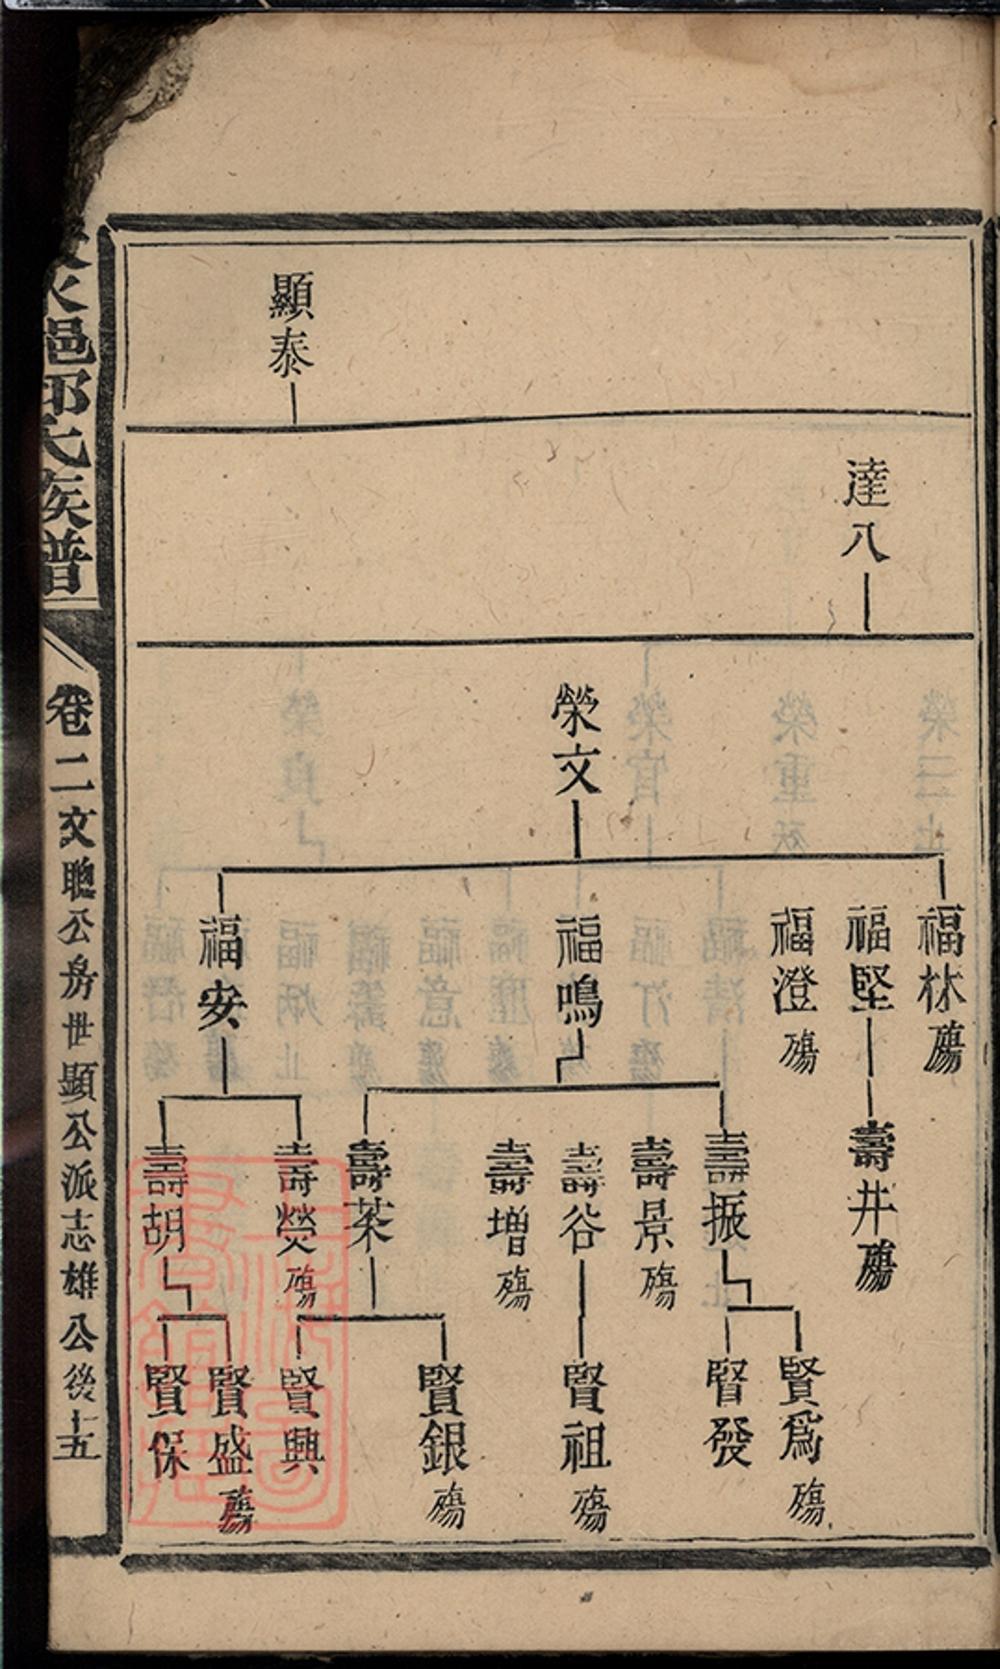 顯泰
達八
榮文
福林殤
福堅
福澄殤
福鳴
福安
壽井殤
壽振
壽景殤
壽谷
壽增殤
壽菜
壽熒殤
壽胡
賢為殤
賢發
賢祖殤
賢銀殤
賢興
賢盛殤
賢保
邑邱氏族譜
卷二文聰公房世顯公派志雄公後十五